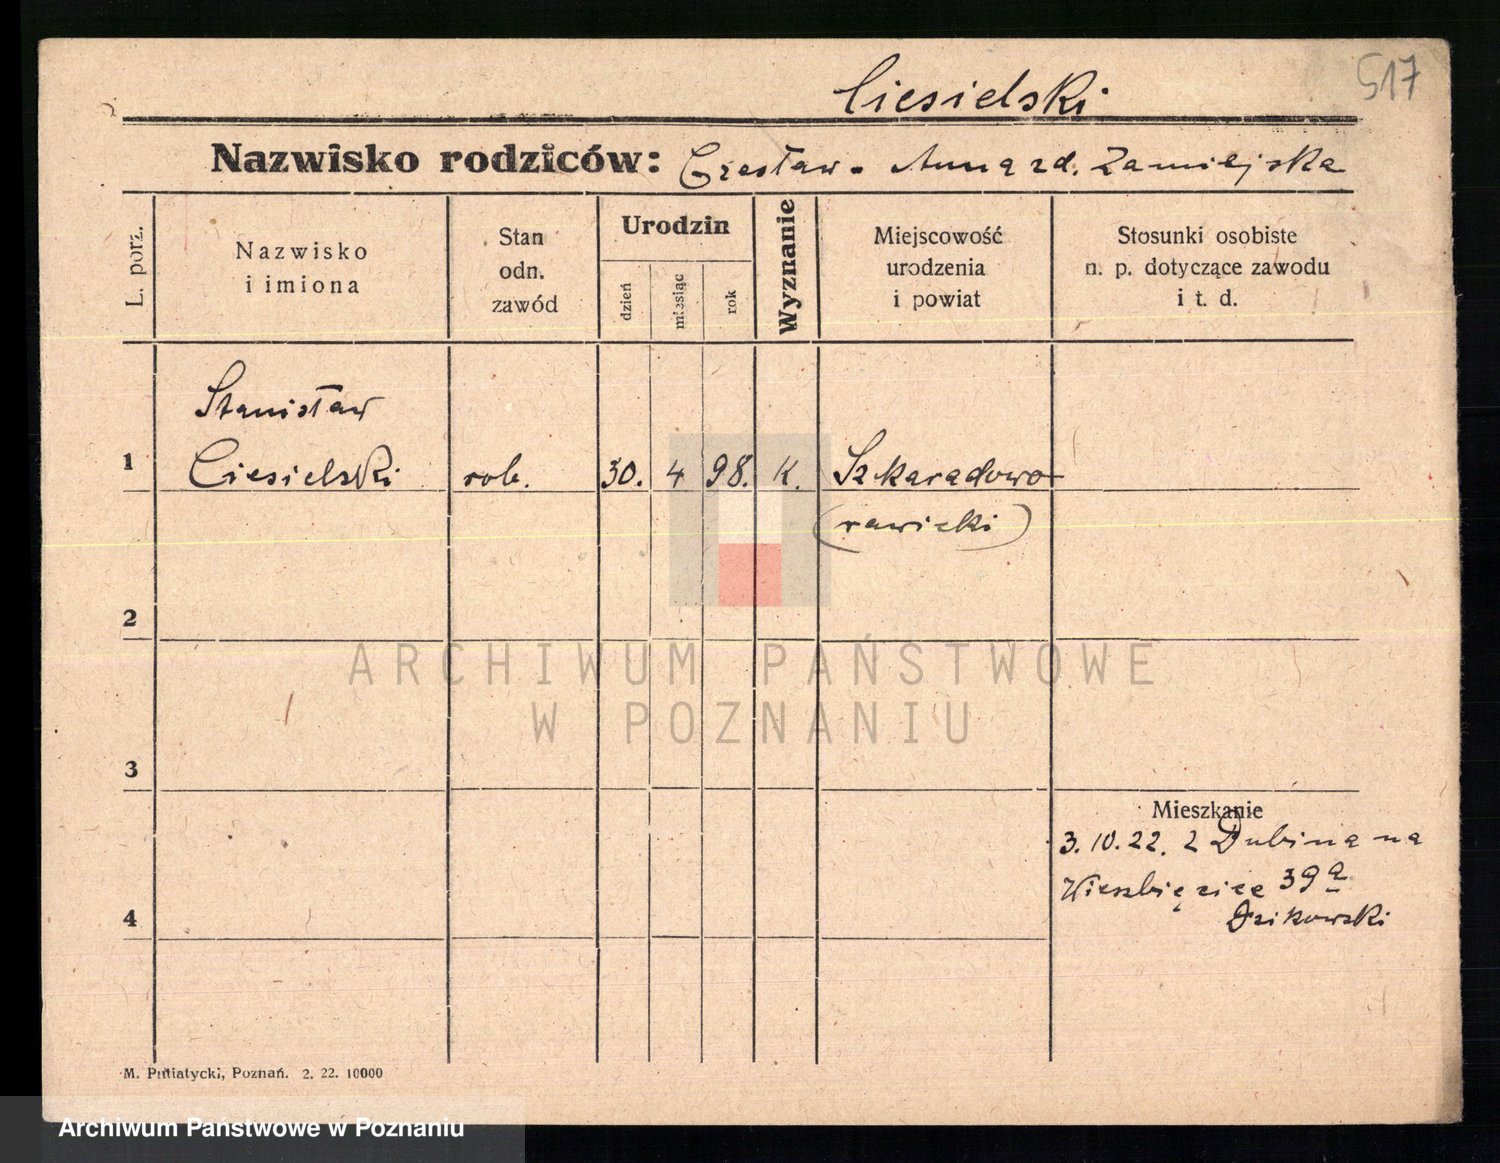 517
Ciesielski
Nazwisko rodziców: Czesław. Anna zd. Zamiejska
L. porz.
Nazwisko
i imiona
Stan
odn.
zawód
Urodzin
dzień
miesiąc
rok
Wyznanie
Miejscowość
urodzenia
i powiat
Stosunki osobiste
n. p. dotyczące zawodu
i t. d.
Stanisław
1 Ciesielski rob. 30. 4 98. K. Szkaradowo
(rawicki)
2
ARCHIWUM PAŃSTWOWE
W POZNANIU
3
Mieszkanie
3.10.22. z Dubina na
Wierzbięcice 39a
4
M. Putiatycki, Poznań. 2. 22. 10000
Archiwum Państwowe w Poznaniu